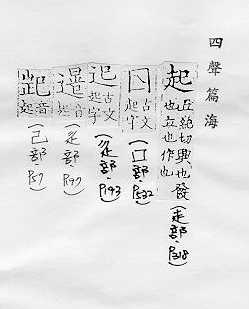 四聲篇海
起
丘紀切興也發
也立也作也
(走部·P318)
古文
起字
(口部·P532)
古文
起字
(辵部·P193)
音
起
(辵部·P197)
音
起
(己部·P57)